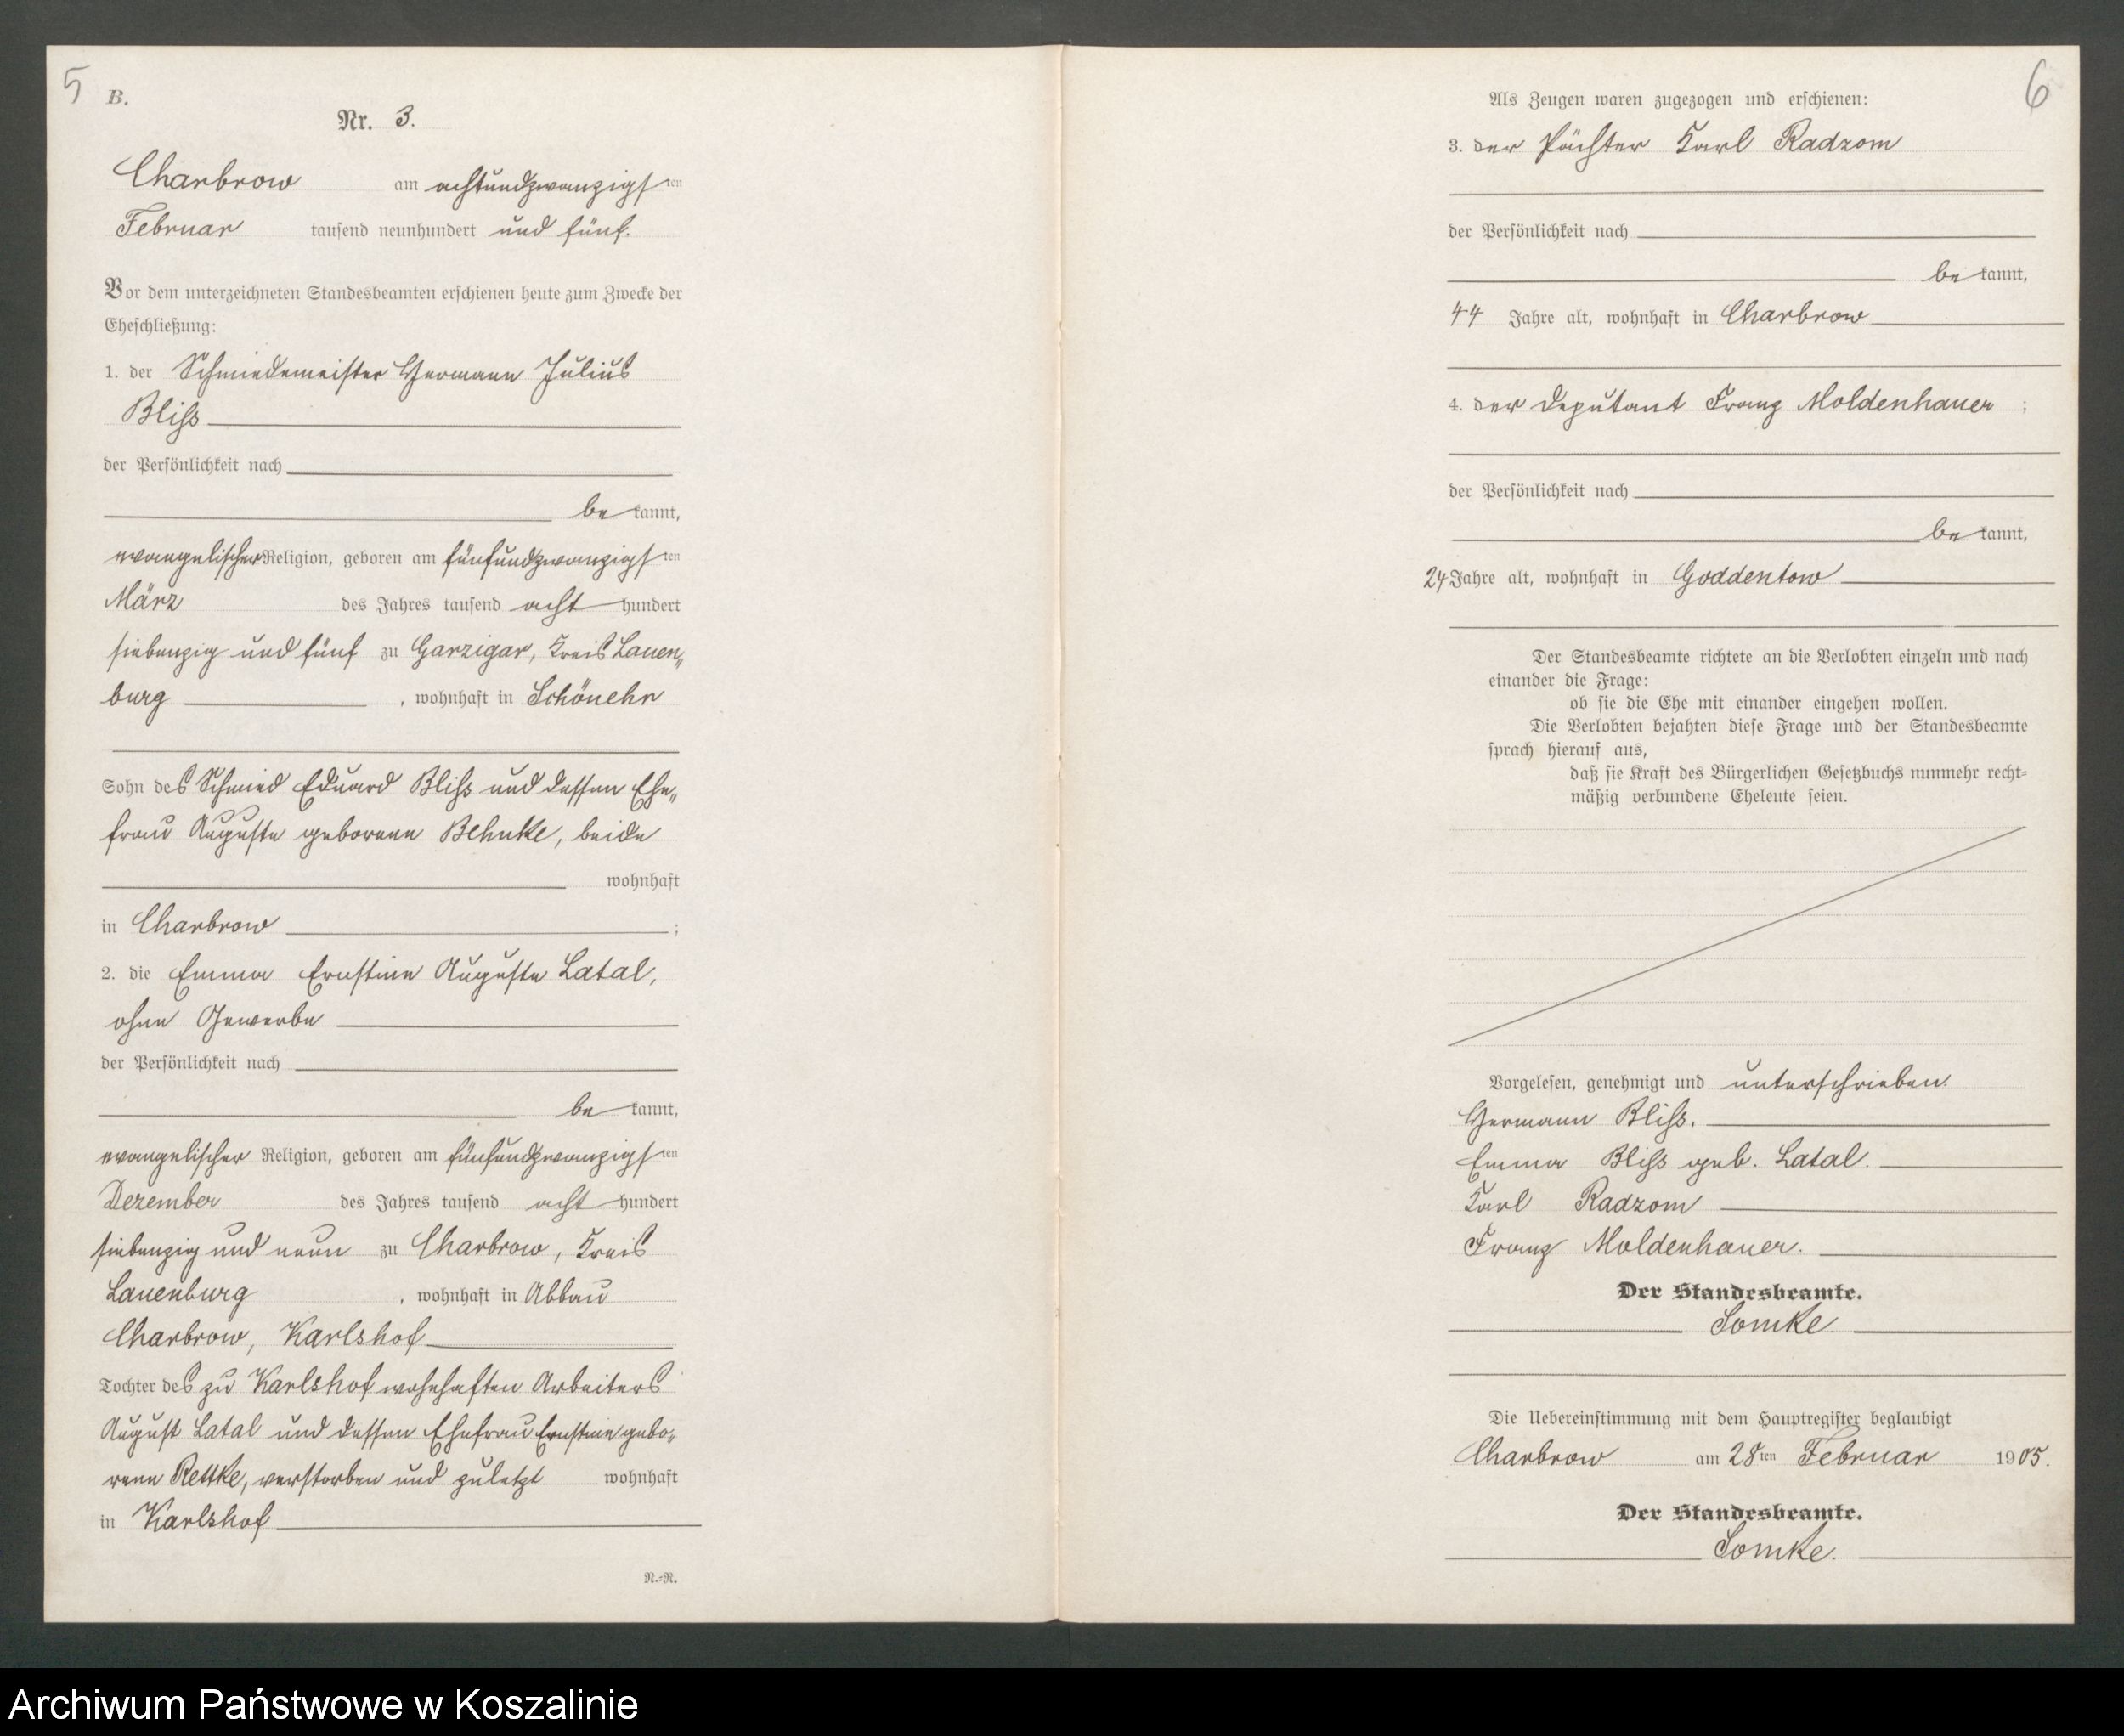 5
B.
Nr. 3.
Charbrow am achtundzwanzigsten
Februar tausend neunhundert und fünf.
Vor dem unterzeichneten Standesbeamten erschienen heute zum Zwecke der
Eheschließung:
1. der Schmiedemeister Hermann Julius
Bliss
der Persönlichkeit nach
be kannt,
evangelischer Religion, geboren am fünfundzwanzigsten
März des Jahres tausend acht hundert
siebenzig und fünf zu Garzigar, Kreis Lauen„
burg, wohnhaft in Schönehr
Sohn des Schmied Eduard Bliss und dessen Ehe„
frau Auguste geborene Behnke, beide
wohnhaft
in Charbrow ;
2. die Emma Ernstine Auguste Latal,
ohne Gewerbe
der Persönlichkeit nach
be kannt,
evangelischer Religion, geboren am fünfundzwanzigsten
Dezember des Jahres tausend acht hundert
siebenzig und neun zu Charbrow, Kreis
Lauenburg, wohnhaft in Abbau
Charbrow, Karlshof
Tochter des zu Karlshof wohnhaften Arbeiters
August Latal und dessen Ehefrau Ernstine gebo„
rene Rettke, verstorben und zuletzt wohnhaft
in Karlshof
N.=N.
6
Als Zeugen waren zugezogen und erschienen:
3. der Pächter Karl Radzom
der Persönlichkeit nach
be kannt,
44 Jahre alt, wohnhaft in Charbrow
4. der Deputant Franz Moldenhauer ;
der Persönlichkeit nach
be kannt,
24 Jahre alt, wohnhaft in Goddentow
Der Standesbeamte richtete an die Verlobten einzeln und nach
einander die Frage:
ob sie die Ehe mit einander eingehen wollen.
Die Verlobten bejahten diese Frage und der Standesbeamte
sprach hierauf aus,
daß sie Kraft des Bürgerlichen Gesetzbuchs nunmehr recht=
mäßig verbundene Eheleute seien.
Vorgelesen, genehmigt und unterschrieben.
Hermann Bliss.
Emma Bliss geb. Latal.
Karl Radzom
Franz Moldenhauer.
Der Standesbeamte.
Somke.
Die Uebereinstimmung mit dem Hauptregister beglaubigt
Charbrow am 28ten Februar 1905.
Der Standesbeamte.
Somke.
Archiwum Państwowe w Koszalinie